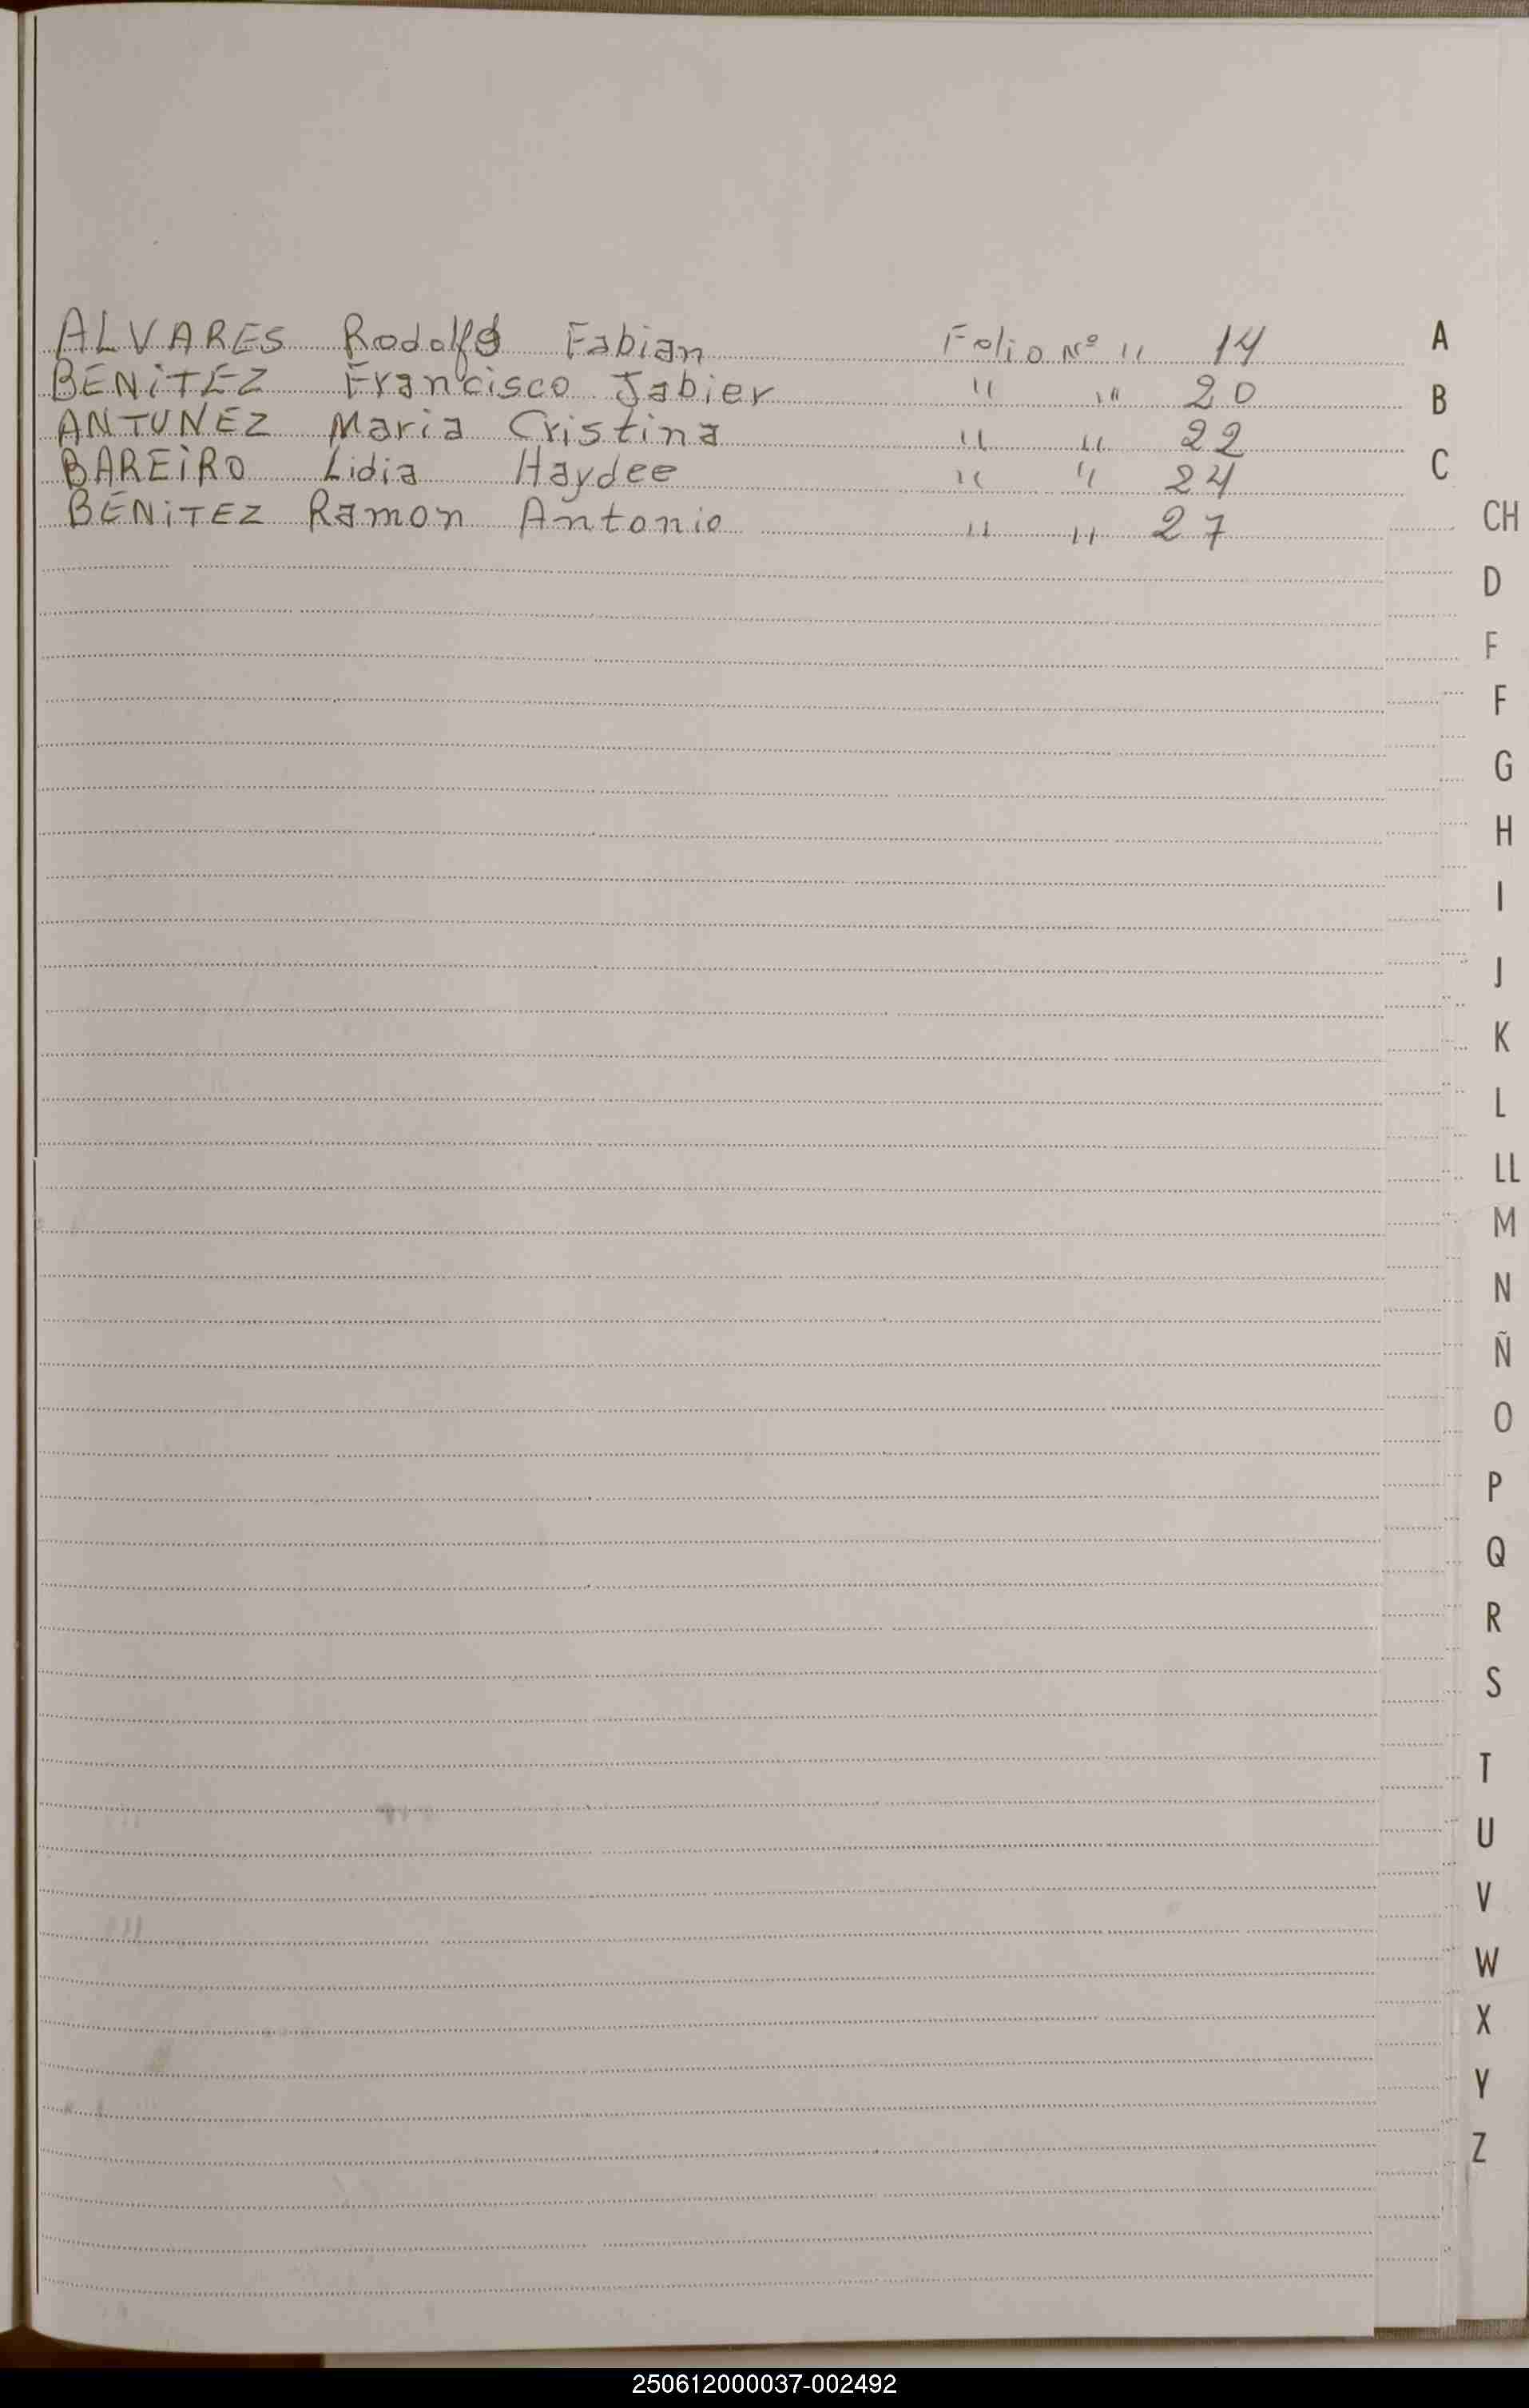 ALVARES Rodolfo Fabian Folio Nº " 14 A
BENiTEZ Francisco Jabier " " 20 B
ANTUNEZ Maria Cristina " " 22
BAREiRO Lidia Haydee " " 24 C
BENiTEZ Ramon Antonio " " 27
CH
D
F
F
G
H
I
J
K
L
LL
M
N
Ñ
O
P
Q
R
S
T
U
V
W
X
Y
Z
250612000037-002492